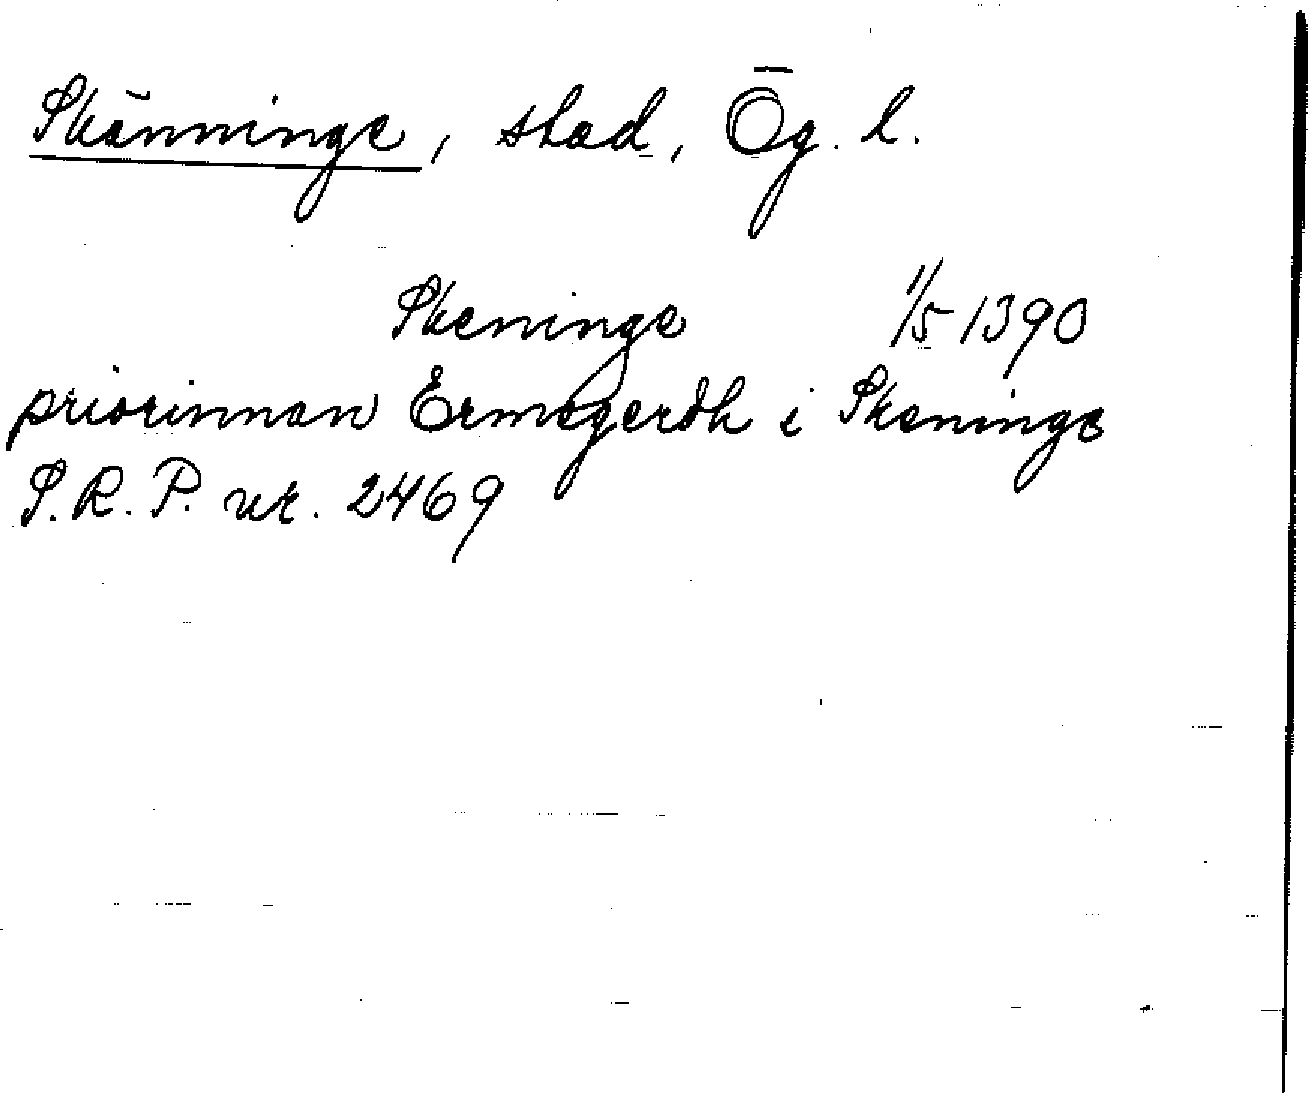 Skänninge, stad, Ög. l.
Skeninge 11/5 1390
priorinnan Ermegerdh i Skeninge
S.R.P. nr. 2469